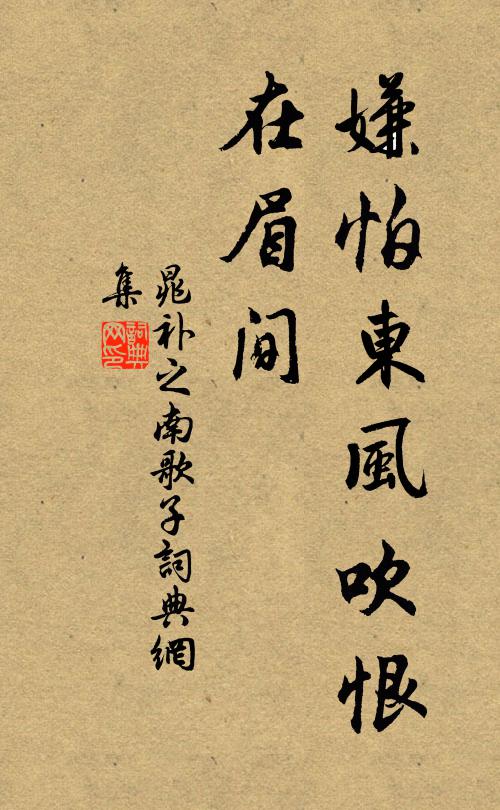 嫌怕東風吹恨
在眉間
晁补之南歌子詞典網
集
詞典
网印